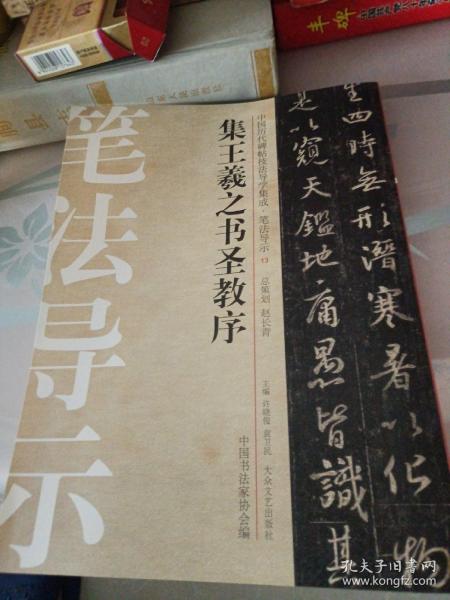 笔法导示
集王羲之书圣教序
中国历代碑帖技法导学集成·笔法导示 13
总策划 赵长青
主编 许晓俊 黄卫民 大众文艺出版社
中国书法家协会编
生四时无形潜寒暑以化物
是以窥天鉴地庸愚皆識其
丰碑
孔夫子旧书网
www.kongfz.com